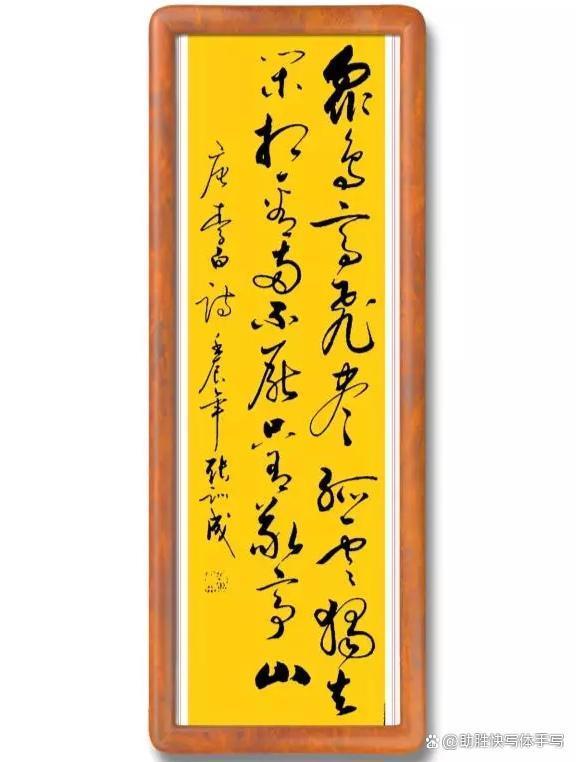 众鸟高飞尽孤云独去
闲相看两不厌只有敬亭山
唐李白诗壬辰年张训成
@助胜快写体手写